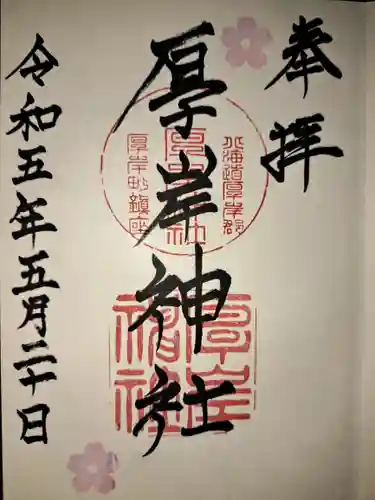 奉拝
厚岸神社
北海道厚岸郡
厚岸神社
厚岸町鎮座
厚岸
神社
令和五年五月二十日